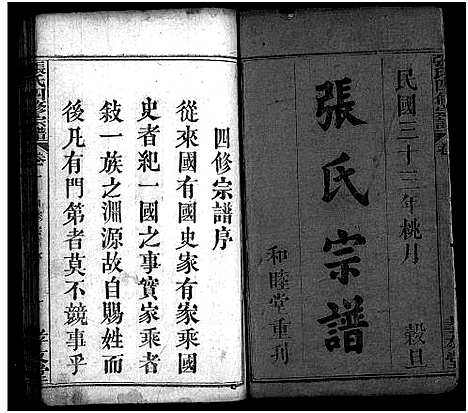 民國三十三年桃月　穀旦
張氏宗譜
和睦堂重刊
四修宗譜序
從來國有國史家有家乘國
史者犯一國之事實家乘者
敍一族之淵源故自賜姓而
後凡有門第者莫不競事乎
張氏四修宗譜